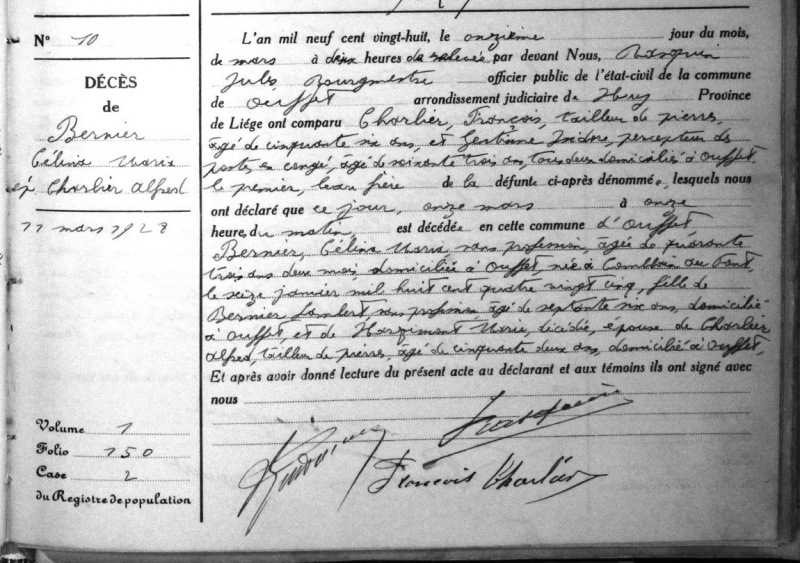 N° 10
DÉCÈS
de
Bernier
Célina Maria
ép. Charlier Alfred
11 mars 1928
Volume 1
Folio 150
Case 2
du Registre de population
L'an mil neuf cent vingt-huit, le onzième jour du mois,
de mars à deux heures de relevée par devant Nous,
Jules Bourgmestre officier public de l'état-civil de la commune
de Ouffet arrondissement judiciaire de Huy Province
de Liége ont comparu Charlier, François, tailleur de pierres,
âgé de cinquante six ans, et Isidore, percepteur des
postes, en congé, âgé de soixante trois ans, tous deux domiciliés à Ouffet,
le premier, beau frère de la défunte ci-après dénommée, lesquels nous
ont déclaré que ce jour, onze mars à onze
heure, du matin, est décédée en cette commune d'Ouffet
Bernier, Célina Maria, sans profession, âgée de quarante
trois ans deux mois, domiciliée à Ouffet, née à Comblain au Pont,
le seize janvier mil huit cent quatre vingt cinq, fille de
Bernier Lambert, sans profession, âgé de septante six ans, domicilié
à Ouffet, et de Marie, décédée, épouse de Charlier
Alfred, tailleur de pierres, âgé de cinquante deux ans, domicilié à Ouffet,
Et après avoir donné lecture du présent acte au déclarant et aux témoins ils ont signé avec
nous
François Charlier